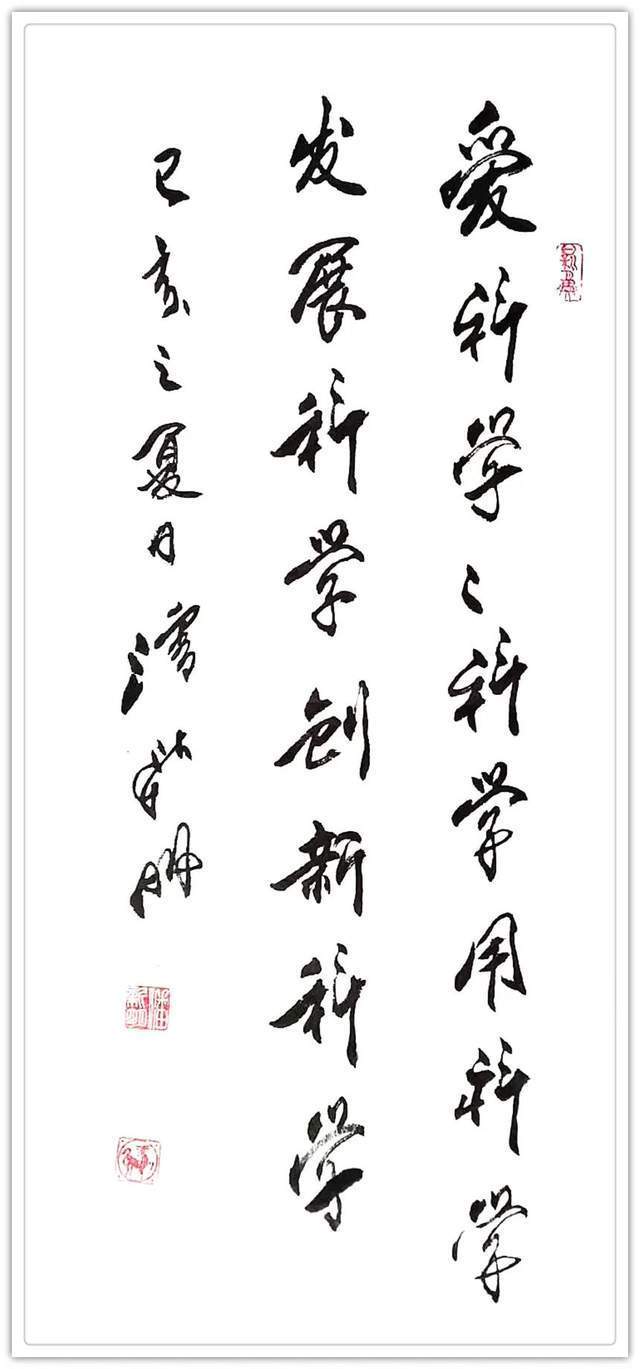 愛科学〻科学用科学
发展科学创新科学
己亥之夏月潘